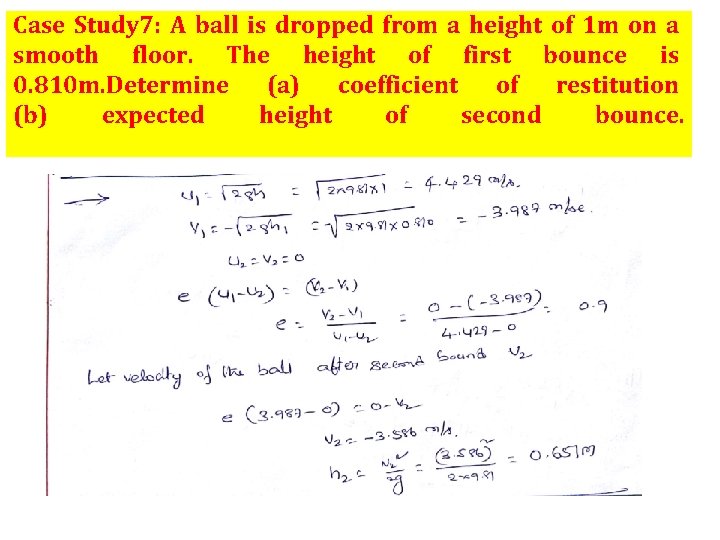 Case Study7: A ball is dropped from a height of 1m on a
smooth floor. The height of first bounce is
0.810m.Determine (a) coefficient of restitution
(b) expected height of second bounce.
→ u₁ = √2gh = √2×9.81×1 = 4.429 m/s.
V₁ = -√2gh₁ = -√2×9.81×0.810 = -3.987 m/se.
U₂ = V₂ = 0
e (u₁-u₂) = (V₂-V₁)
e = V₂-V₁/u₁-u₂ = 0-(-3.987)/4.429-0 = 0.9
Let velocity of the ball after second bound V₂
e (3.987-0) = 0-V₂
V₂ = -3.586 m/s.
h₂ = V₂²/2g = (3.586)²/2×9.81 = 0.651m